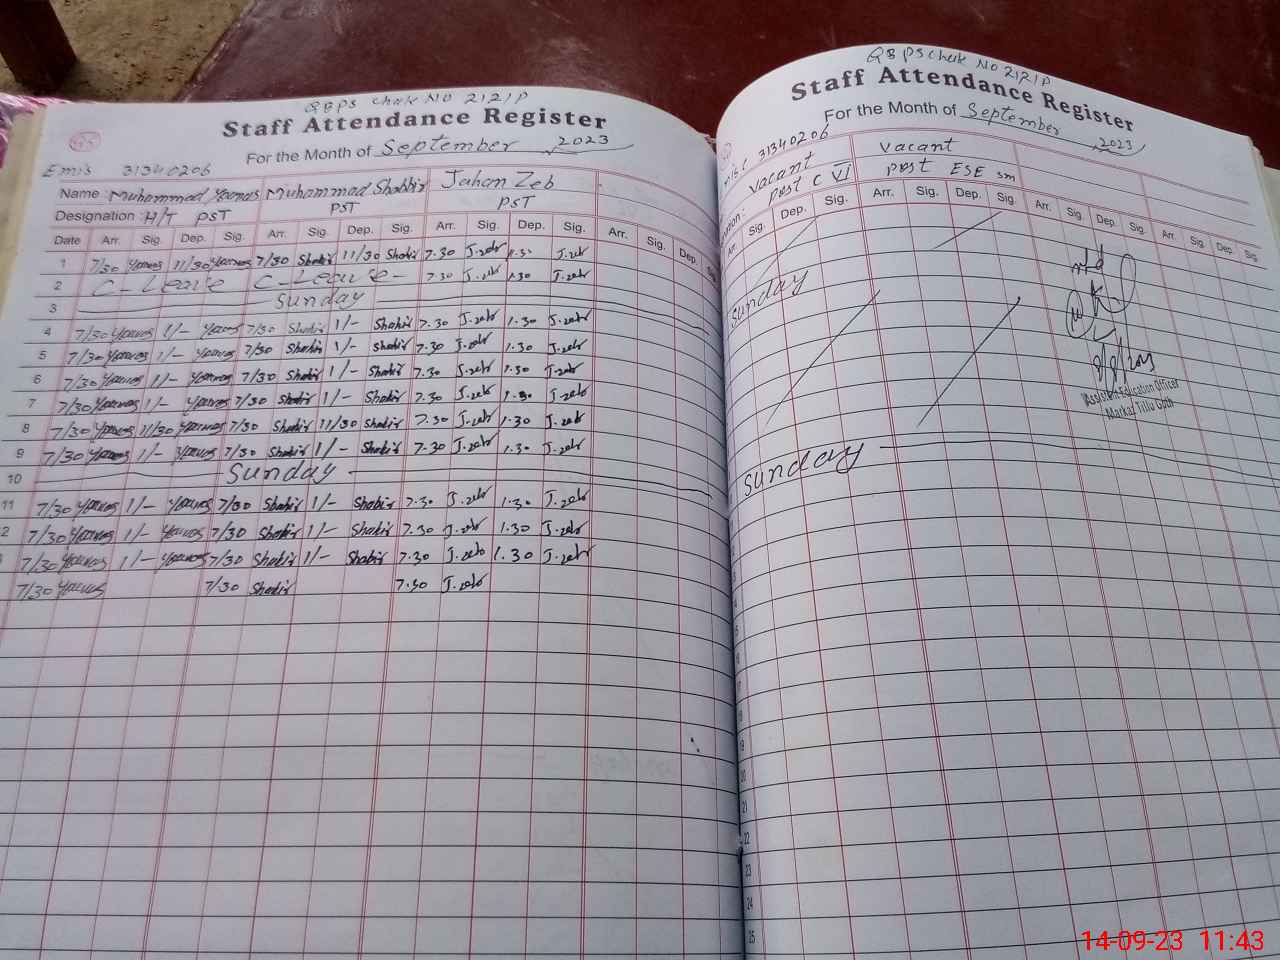 GBPS Chak No 212/P
Staff Attendance Register
For the Month of September 2023
Emis 31340206
Name : Muhammad Younas Muhammad Shabbir Jahan Zeb
Designation : H/T PST PST PST
Date Arr. Sig. Dep. Sig. Arr. Sig. Dep. Sig. Arr. Sig. Dep. Sig. Arr. Sig. Dep.
1 7/30 Younas 11/30 Younas 7/30 Shabir 11/30 Shabir 7.30 J.zeb 1.30 J.zeb
2 C-Leave C-Leave- 7.30 J.zeb 1.30 J.zeb
3 Sunday
4 7/30 Younas 1/- Younas 7/30 Shabir 1/- Shabir 7.30 J.zeb 1.30 J.zeb
5 7/30 Younas 1/- Younas 7/30 Shabir 1/- Shabir 7.30 J.zeb 1.30 J.zeb
6 7/30 Younas 1/- Younas 7/30 Shabir 1/- Shabir 7.30 J.zeb 1.30 J.zeb
7 7/30 Younas 1/- Younas 7/30 Shabir 1/- Shabir 7.30 J.zeb 1.30 J.zeb
8 7/30 Younas 11/30 Younas 7/30 Shabir 11/30 Shabir 7.30 J.zeb 1.30 J.zeb
9 7/30 Younas 1/- Younas 7/30 Shabir 1/- Shabir 7.30 J.zeb 1.30 J.zeb
10 Sunday
11 7/30 Younas 1/- Younas 7/30 Shabir 1/- Shabir 7.30 J.zeb 1.30 J.zeb
2 7/30 Younas 1/- Younas 7/30 Shabir 1/- Shabir 7.30 J.zeb 1.30 J.zeb
7/30 Younas 1/- Younas 7/30 Shabir 1/- Shabir 7.30 J.zeb 1.30 J.zeb
7/30 Younas 7/30 Shabir 7.30 J.zeb
GBPS Chak No 212/P
Staff Attendance Register
For the Month of September 2023
31340206
vacant vacant
post C VI post ESE sm
Arr. Sig. Dep. Sig. Arr. Sig. Dep. Sig. Arr. Sig. Dep. Sig. Arr. Sig. Dep. Sig.
Sunday
Assistant Education Officer
Markaz Tillu Goth
Sunday
19
20
21
22
23
24
25
14-09-23 11:43